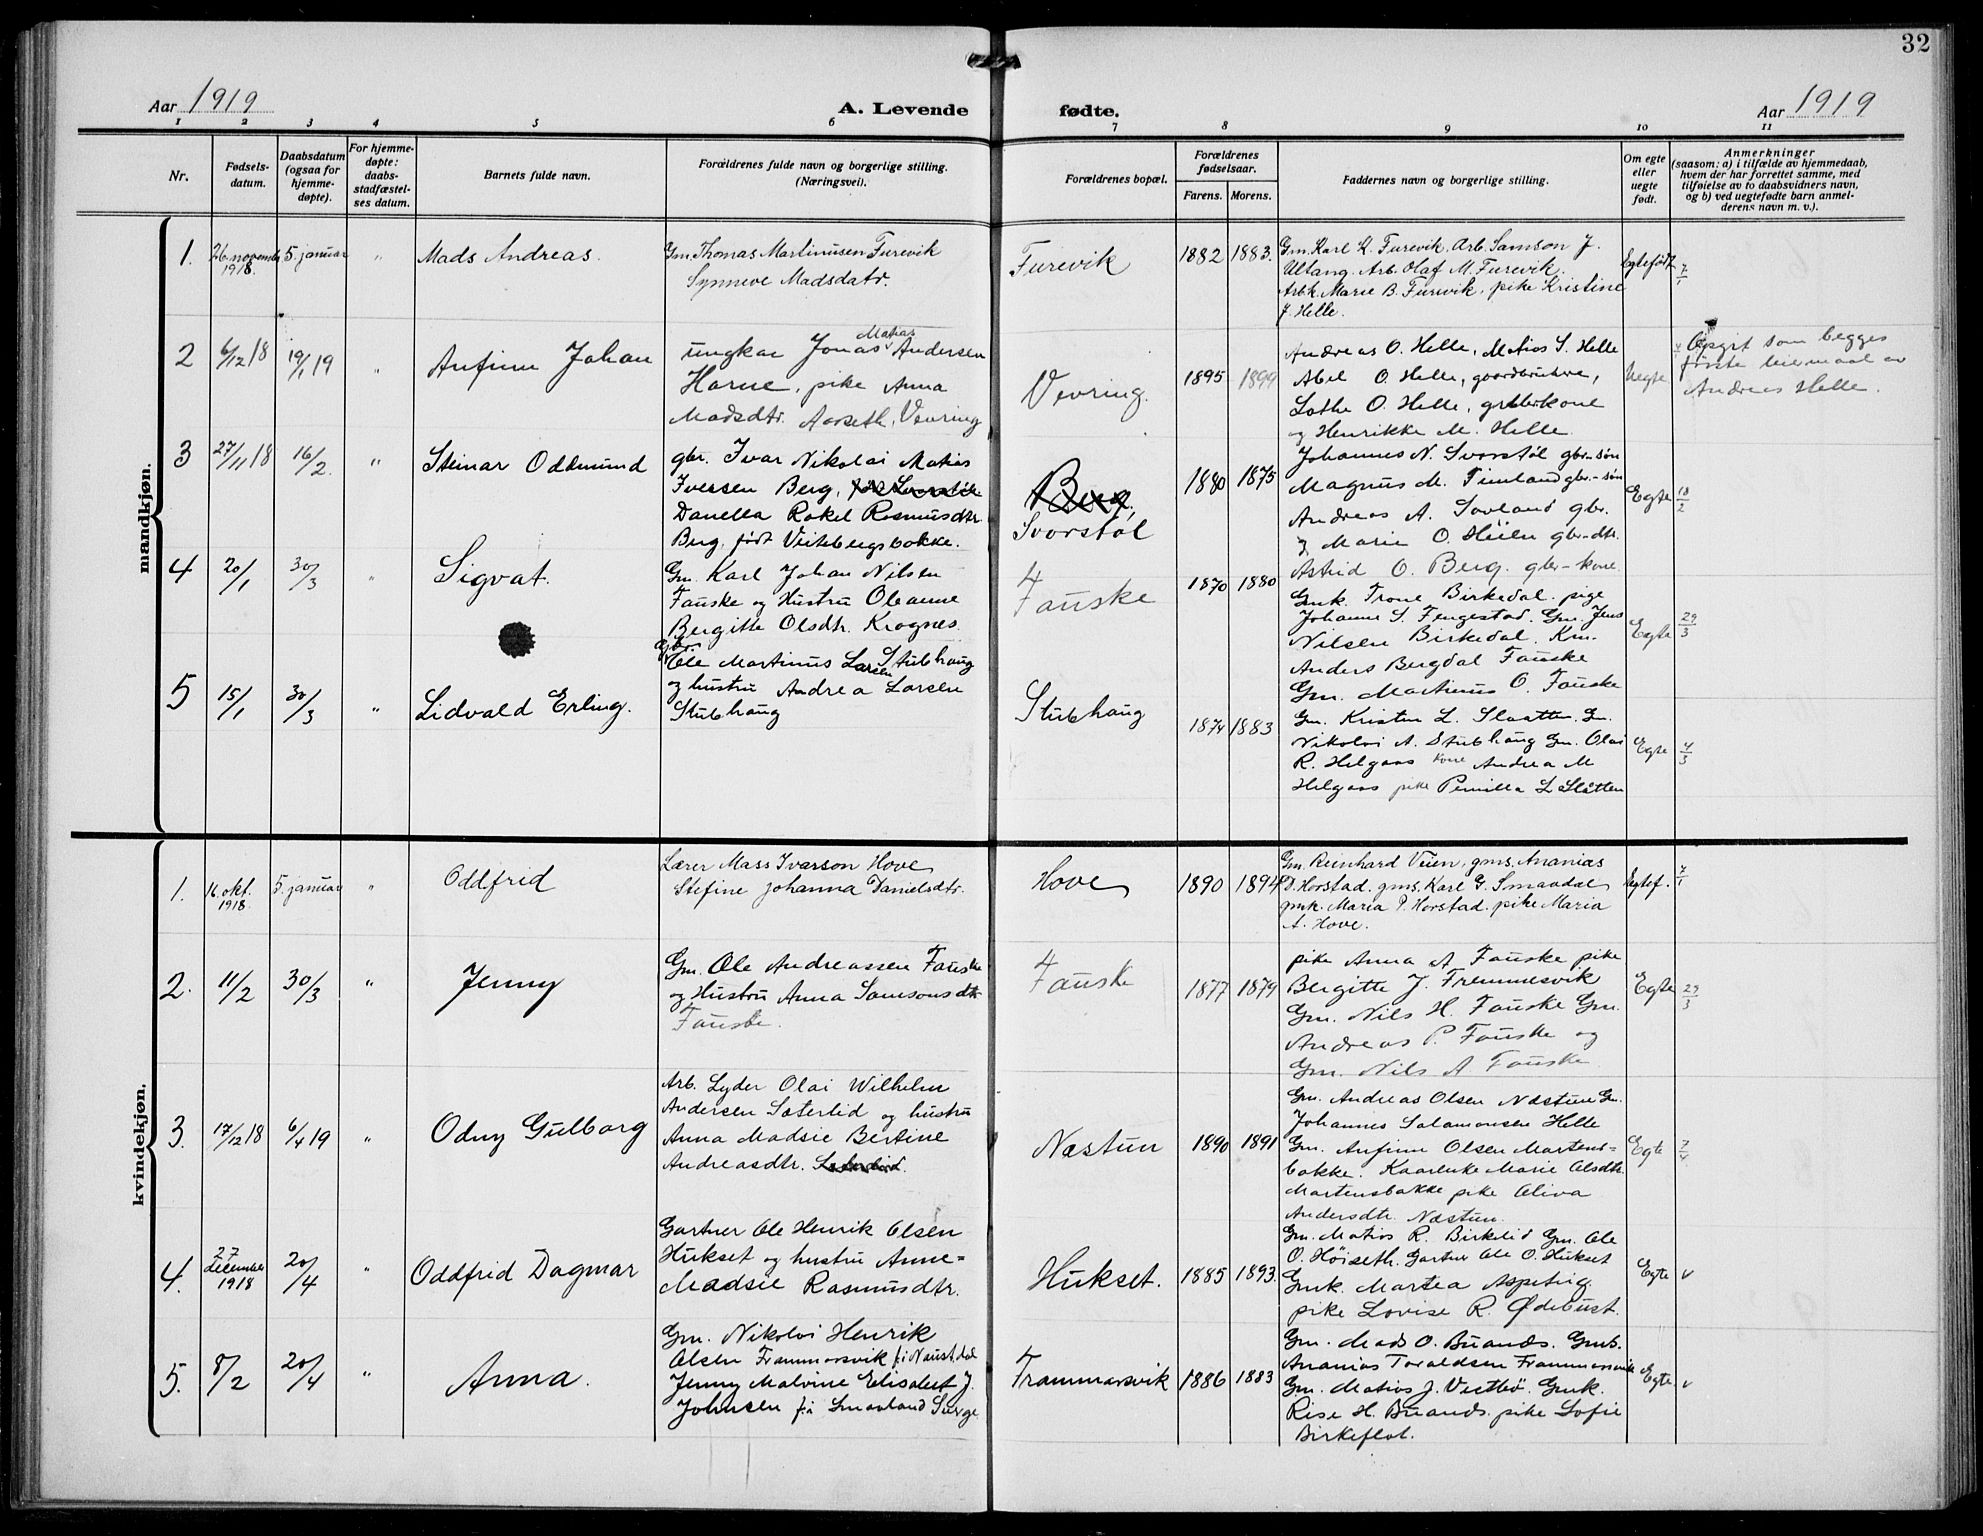 32
Aar 1919
A. Levende fødte.
Aar 1919
1 2 3 4 5 6 7 8 9 10 11
Nr.
Fødsels-
datum.
Daabsdatum
(ogsaa for
hjemme-
døpte).
For hjemme-
døpte:
daabs-
stadfæstel-
ses datum.
Barnets fulde navn.
Forældrenes fulde navn og borgerlige stilling.
(Næringsvei).
Forældrenes bopæl.
Forældrenes
fødselsaar.
Farens. Morens.
Faddernes navn og borgerlige stilling.
Om egte
eller
uegte
født.
Anmerkninger
(saasom: a) i tilfælde av hjemmedaab,
hvem der har forrettet samme, med
tilføielse av to daabsvidners navn,
og b) ved uegtefødte barn anmel-
derens navn m. v.).
mandkjøn.
1. 26. novembr 1918. 5. januar " Mads Andreas.
Gm. Thomas Martinusen Furevik
Synneve Madsdatr.
Furevik 1882 1883.
Gm. Karl K. Furevik, Arb. Samson J.
Utang. Arb. Olaf M. Furevik.
Arbk. Marie B. Furevik, pike Kristine
J. Helle.
Egtefødt 7/1
2 6/12 18 19/1 19 " Anfinn Johan
ungkar Jonas Matias Andersen
Horne, pike Anna
Madsdtr. Aarseth, Vevring
Vevring. 1895 1899
Andreas O. Helle, Matios S. Helle
Abel O. Helle, gaardbrukere,
Lothe O. Helle, grdbrkone
og Henrikke M. Helle.
Uegte
Opgit som begges
første leiermaal av
Andreas Helle.
3 27/11 18 16/2. " Steinar Oddmund
gbr. Ivar Nikolai Matias
Iversen Berg,
Danella Rakel Rasmusdtr.
Berg, født Veitebergsbakke.
Berg,
Svorstøl
1880 1875
Johannes N. Svorstøl gbr-søn
Magnus M. Timland gbr.-søn
Andreas A. Sovland gbr.
Marie O. Høien gbr-dtr.
Astrid O. Berg. gbr-kone.
Egte 18/2
4 20/1 30/3 " Sigvat.
Gm. Karl Johan Nilsen
Fauske og Hustru Oleanne
Bergitte Olsdtr. Krognes.
Fauske 1870 1880
Gmk. Trone Birkedal. pige
Johanne S. Fengestad. Gm. Jens
Nilsen Birkedal. Km.
Anders Bergdal Fauske
Gm. Martinus O. Fauske
Egte 29/3
5 15/1 30/3 " Lidvald Erling.
Gbr.
Ole Martinus Larsen Stubhaug
og hustru Andrea Larsen
Stubhaug
Stubhaug 1874 1883
Gm. Kristen L. Slaatten. Gm.
Nikolai A. Stubhaug Gm. Olai
R. Helgaas kone Andrea M
Helgaas pike Pernilla L Slåtten
Egte 4/3
kvindekjøn.
1. 16. okt. 1918. 5. januar " Oddfrid
Lærer Mass Ivarson Hove
Stefine Johanna Danielsdtr.
Hove 1890 1894
Gm. Reinhard Veien, gms. Ananias
D. Horstad. gms. Karl G. Smaadal
gmk. Maria P. Horstad. pike Maria
A. Hove.
Egtef. 7/1
2. 11/2 30/3 " Jenny
Gm. Ole Andreassen Fauske
og Hustru Anna Samsonsdtr
Fauske.
Fauske 1877 1879
pike Anna A Fauske pike
Bergitte J. Fremmesvik
Gm. Nils H. Fauske Gm.
Andreas P. Fauske og
Gm. Nils A Fauske
Egte 29/3
3. 17/12 18 6/4 19 " Odny Gulborg
Arb. Lyder Olai Wilhelm
Andersen Sæterlid og hustru
Anna Madsie Bertine
Andreasdtr.
Næstun 1890 1891
Gm. Andreas Olsen Næstun Gm.
Johannes Salamonsen Helle
Gm. Anfinn Olsen Martens-
bakke. Kaarenke Marie Olsdtr.
Martensbakke pike Oliva
Andersdtr. Næstun.
Egte 7/4
4. 27 December 1918 20/4 " Oddfrid Dagmar
Gartner Ole Henrik Olsen
Hukset og hustru Anne-
Madsie Rasmusdtr.
Hukset. 1885 1893.
Gm. Matios R. Birkelid Gm. Ole
O. Høiseth. Gartner Ole O. Hukset
Gmk. Martea Aspeteig.
pike Lovise R. Ødebust.
Egte v
5. 8/2 20/4 " Anna.
Gm. Nikolai Henrik
Olsen Frammarsvik f. i Naustdal
Jenny Malvine Elisabet J.
Johnsen f. i Smaaland Sverge.
Frammarsvik 1886 1883
Gm. Mads O. Buands. Gmk.
Ananias Toraldsen Frammarsvik
Gm. Matios J. Vestbø. Gmk.
Rise H. Buands. pike Sofie
Birkeflot.
Egte. v